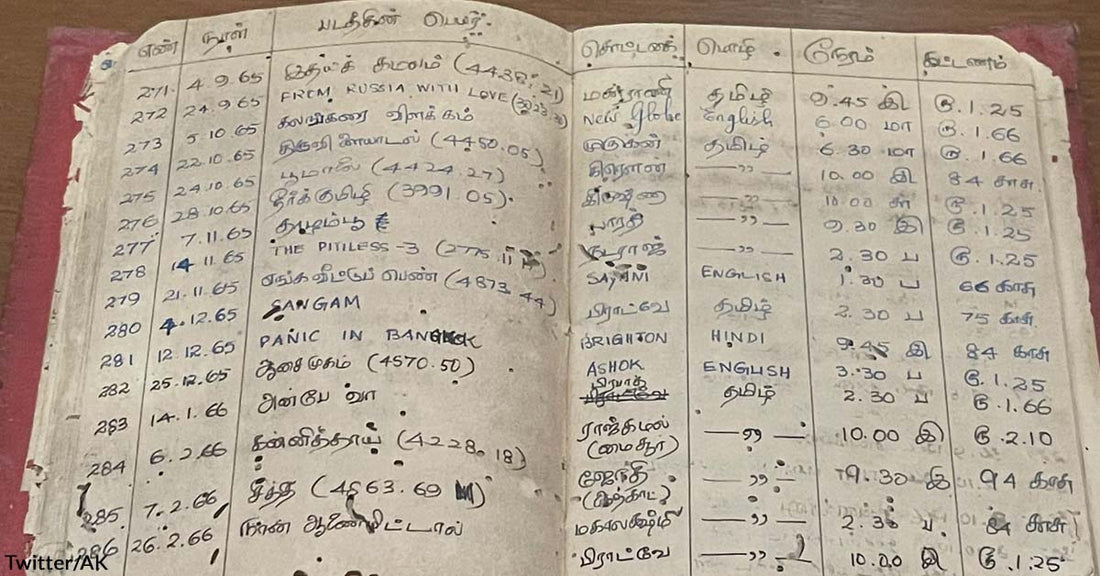 எண் நாள் படத்தின் பெயர். கொட்டகை மொழி. நேரம் கட்டணம்
271 4.9.65 இதயக் கமலம் (4438.21) மகாராணி தமிழ் 9.45 இ ரூ.1.25
272 24.9.65 FROM RUSSIA WITH LOVE New Globe English 6.00 மா ரூ.1.66
273 5.10.65 கலங்கரை விளக்கம் முருகன் தமிழ் 6.30 மா ரூ.1.66
274 22.10.65 திருவிளையாடல் (4450.05) கிரௌன் —,,— 10.00 இ 84 காசு
275 24.10.65 பூமாலை (4424.27) கிருஷ்ணா —,,— 10.00 கா ரூ.1.25
276 28.10.65 நீர்க்குமிழி (3991.05). பாரதி —,,— 9.30 இ ரூ.1.25
277 7.11.65 தாழம்பூ நடராஜ் —,,— 2.30 ப ரூ.1.25
278 14.11.65 THE PITILESS-3 SAYANI ENGLISH 1.30 ப 66 காசு
279 21.11.65 எங்க வீட்டுப் பெண் (4873.44) பிராட்வே தமிழ் 2.30 ப 75 காசு
280 4.12.65 SANGAM BRIGHTON HINDI 9.45 இ 84 காசு
281 12.12.65 PANIC IN BANGKOK ASHOK ENGLISH 3.30 ப ரூ.1.25
282 25.12.65 ஆசை முகம் (4570.50) பிரபாத் தமிழ் 2.30 ப ரூ.1.66
283 14.1.66 அன்பே வா ராஜ்கமல் —,,— 10.00 இ ரூ.2.10
(மைசூர்)
284 6.2.66 கன்னித்தாய் (4228.18) ஜெயந்தி —,,— 9.30 இ 94 காசு
(ஆற்காட்)
285 7.2.66 சித்தி (4863.69) மகாலக்ஷ்மி —,,— 2.30 ப 84 காசு
286 26.2.66 நான் ஆணையிட்டால் பிராட்வே —,,— 10.00 இ ரூ.1.25
Twitter/AK